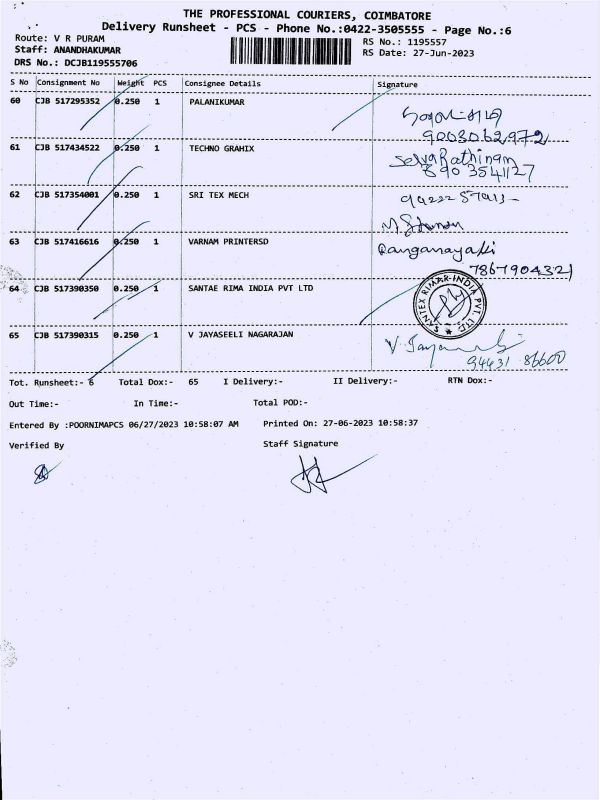 THE PROFESSIONAL COURIERS, COIMBATORE
Delivery Runsheet - PCS - Phone No.:0422-3505555 - Page No.:6
Route: V R PURAM
RS No.: 1195557
Staff: ANANDHAKUMAR
RS Date: 27-Jun-2023
DRS No.: DCJB119555706
S No Consignment No Weight PCS Consignee Details Signature
60 CJB 517295352 0.250 1 PALANIKUMAR
9003062972
61 CJB 517434522 0.250 1 TECHNO GRAHIX
SelvaRathinam
8903541127
62 CJB 517354001 0.250 1 SRI TEX MECH
63 CJB 517416616 0.250 1 VARNAM PRINTERSD
Ranganayaki
7867904321
64 CJB 517390350 0.250 1 SANTAE RIMA INDIA PVT LTD
SANTEX RIMAR INDIA PVT. LTD.
65 CJB 517390315 0.250 1 V JAYASEELI NAGARAJAN
94431 86600
Tot. Runsheet:- 6 Total Dox:- 65 I Delivery:- II Delivery:- RTN Dox:-
Out Time:- In Time:- Total POD:-
Entered By :POORNIMAPCS 06/27/2023 10:58:07 AM Printed On: 27-06-2023 10:58:37
Verified By Staff Signature